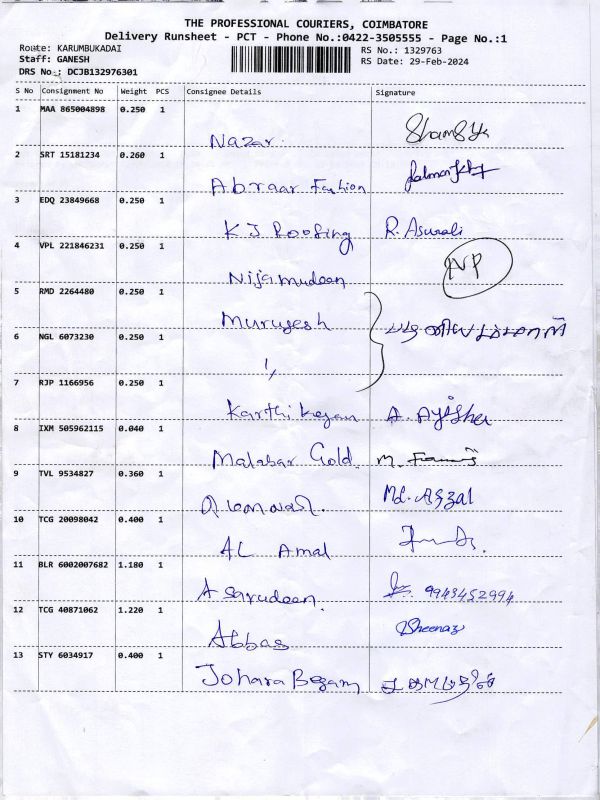 THE PROFESSIONAL COURIERS, COIMBATORE
Delivery Runsheet - PCT - Phone No.:0422-3505555 - Page No.:1
Route: KARUMBUKADAI
Staff: GANESH
DRS No.: DCJB132976301
RS No.: 1329763
RS Date: 29-Feb-2024
S No Consignment No Weight PCS Consignee Details Signature
1 MAA 865004898 0.250 1
Nazar
2 SRT 15181234 0.260 1
Abraar Fashion
3 EDQ 23849668 0.250 1
K J Roofing R. Asurali
4 VPL 221846231 0.250 1
Nijamudeen
5 RMD 2264480 0.250 1
Murugesh
6 NGL 6073230 0.250 1
7 RJP 1166956 0.250 1
Karthikeyan A. Ayisha
8 IXM 505962115 0.040 1
Malabar Gold M.
9 TVL 9534827 0.360 1
Md. Afzal
10 TCG 20098042 0.400 1
AL Amal
11 BLR 6002007682 1.180 1
Asarudeen. 9943452994
12 TCG 40871062 1.220 1
Abbas Sheenaz
13 STY 6034917 0.400 1
Johara Begam